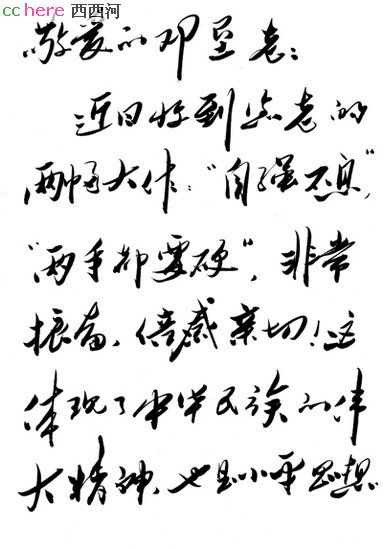 cchere 西西河
敬爱的邓垦老:
近日收到您老的
两幅大作:"自强不息",
"两手都要硬",非常
振奋,倍感亲切!这
体现了中华民族的伟
大精神,也是小平思想